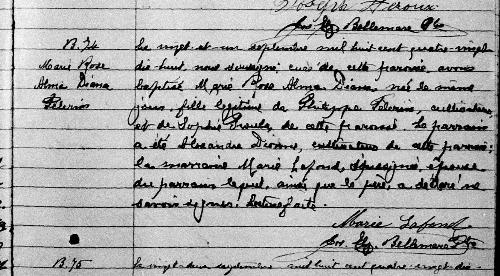 Joseph Héroux
Jos Elz Bellemare Ptre
B. 74
Marie Rose
Alma Diana
Pelerin
Le vingt et un septembre mil huit cent quatre-vingt
dix huit nous soussigné, curé de cette paroisse, avons
baptisé Marie Rose Alma Diana, née le même
jour, fille légitime de Philippe Pelerin, cultivateur
et de Sophie de cette paroisse. Le parrain
a été Alexandre cultivateur de cette paroisse;
la marraine Marie Lafond, soussignée, épouse
du parrain lequel, ainsi que le père, a déclaré ne
savoir signer. Lecture faite.
Marie Lafond
Jos Elz Bellemare Ptre
B. 75
Le vingt deux septembre mil huit cent quatre-vingt dix